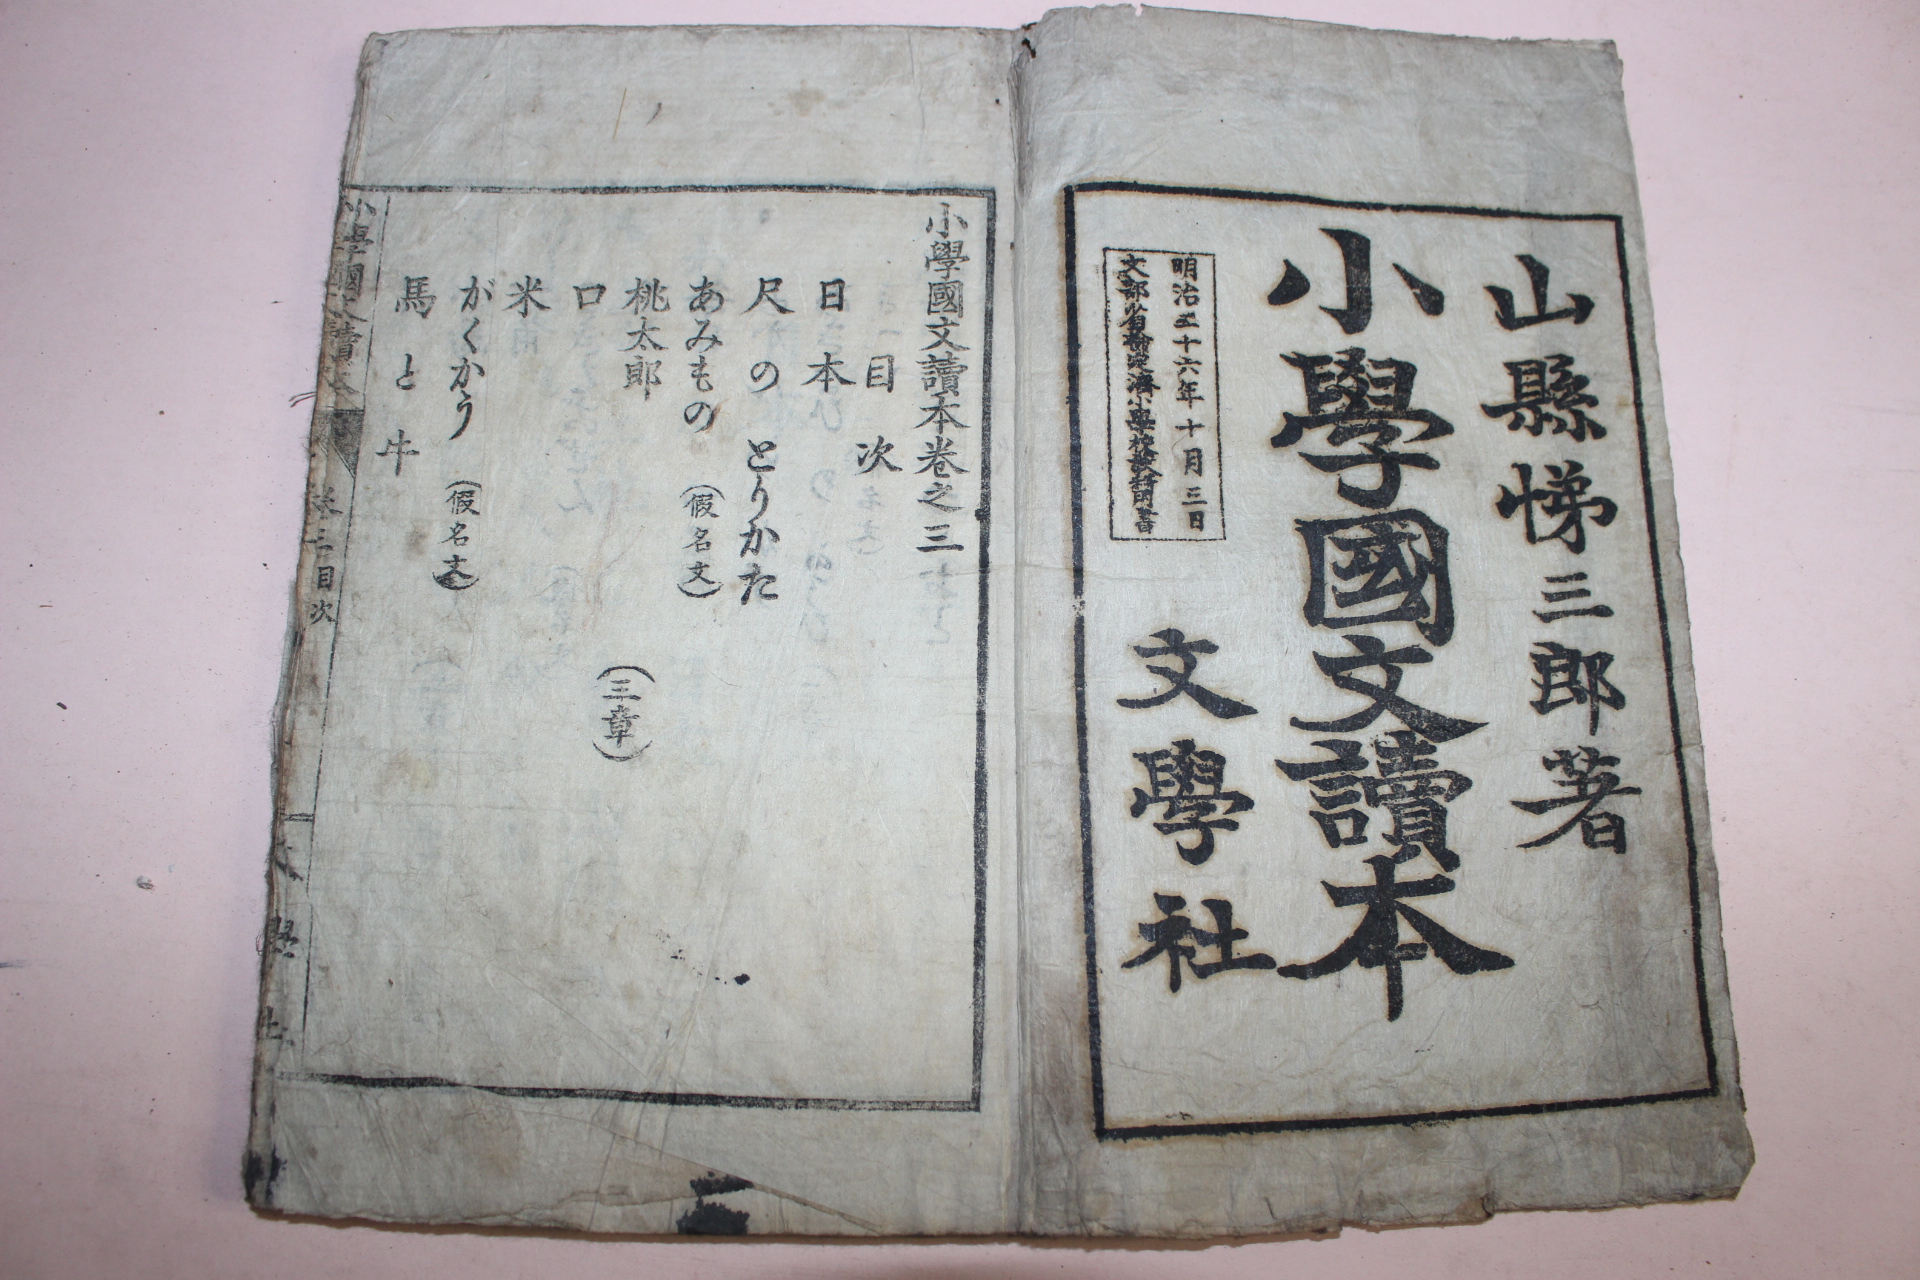 山縣悌三郎著
小學國文讀本
明治二十六年十月三日
文部省檢定濟小學校教科用書
文學社
小學國文讀本卷之三
目次
日本
尺のとりかた
あみもの（假名文）
桃太郎（三章）
口
米
がくかう（假名文）
馬と牛
小學國文讀本
卷三目次